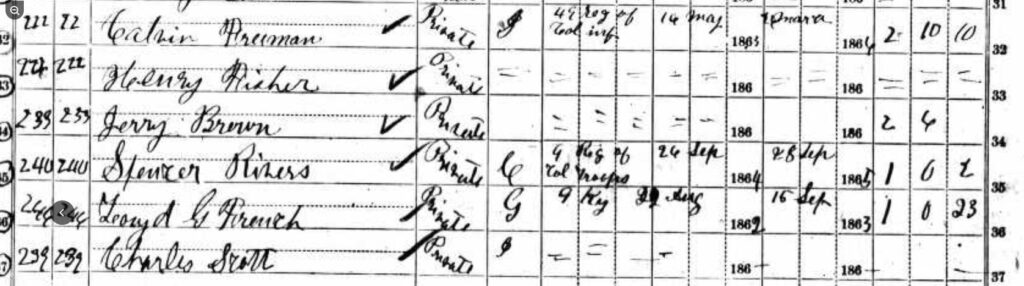 31
32 222 22 Calvin Freeman Private 49 Reg of Col inf 14 May 1863 1864 2 10 10 32
33 222 Henry Fisher Private = = = = = 186 = = 186 = = = = 33
34 233 233 Jerry Brown Private = = = = = 186 186 2 34
35 240 240 Spencer Rivers Private C 9 Reg of Col Troops 26 Sep 1864 28 Sep 1865 1 0 2 35
36 244 G French Private G 9 Ky Aug 1862 15 Sep 1863 1 0 23 36
37 239 239 Charles Scott Private = = = 186 186 37